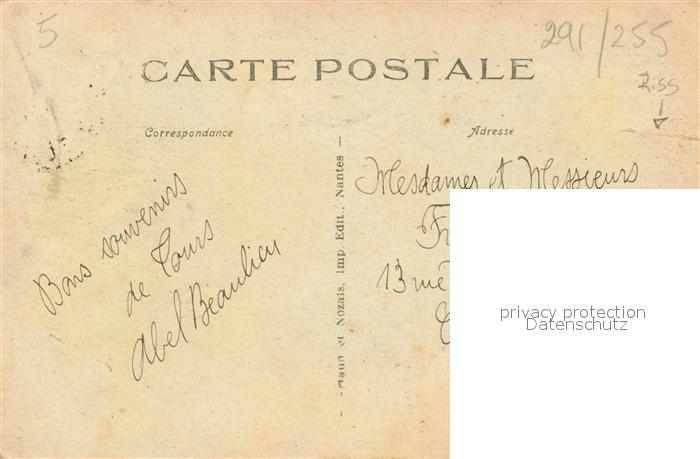 5
291/255
CARTE POSTALE
Riss
Correspondance
Adresse
Bons souvenirs
de Tours
Abel Beaulieu
et Nozais, Imp. Edit., Nantes —
Mesdames et Messieurs
13 rue
privacy protection
Datenschutz